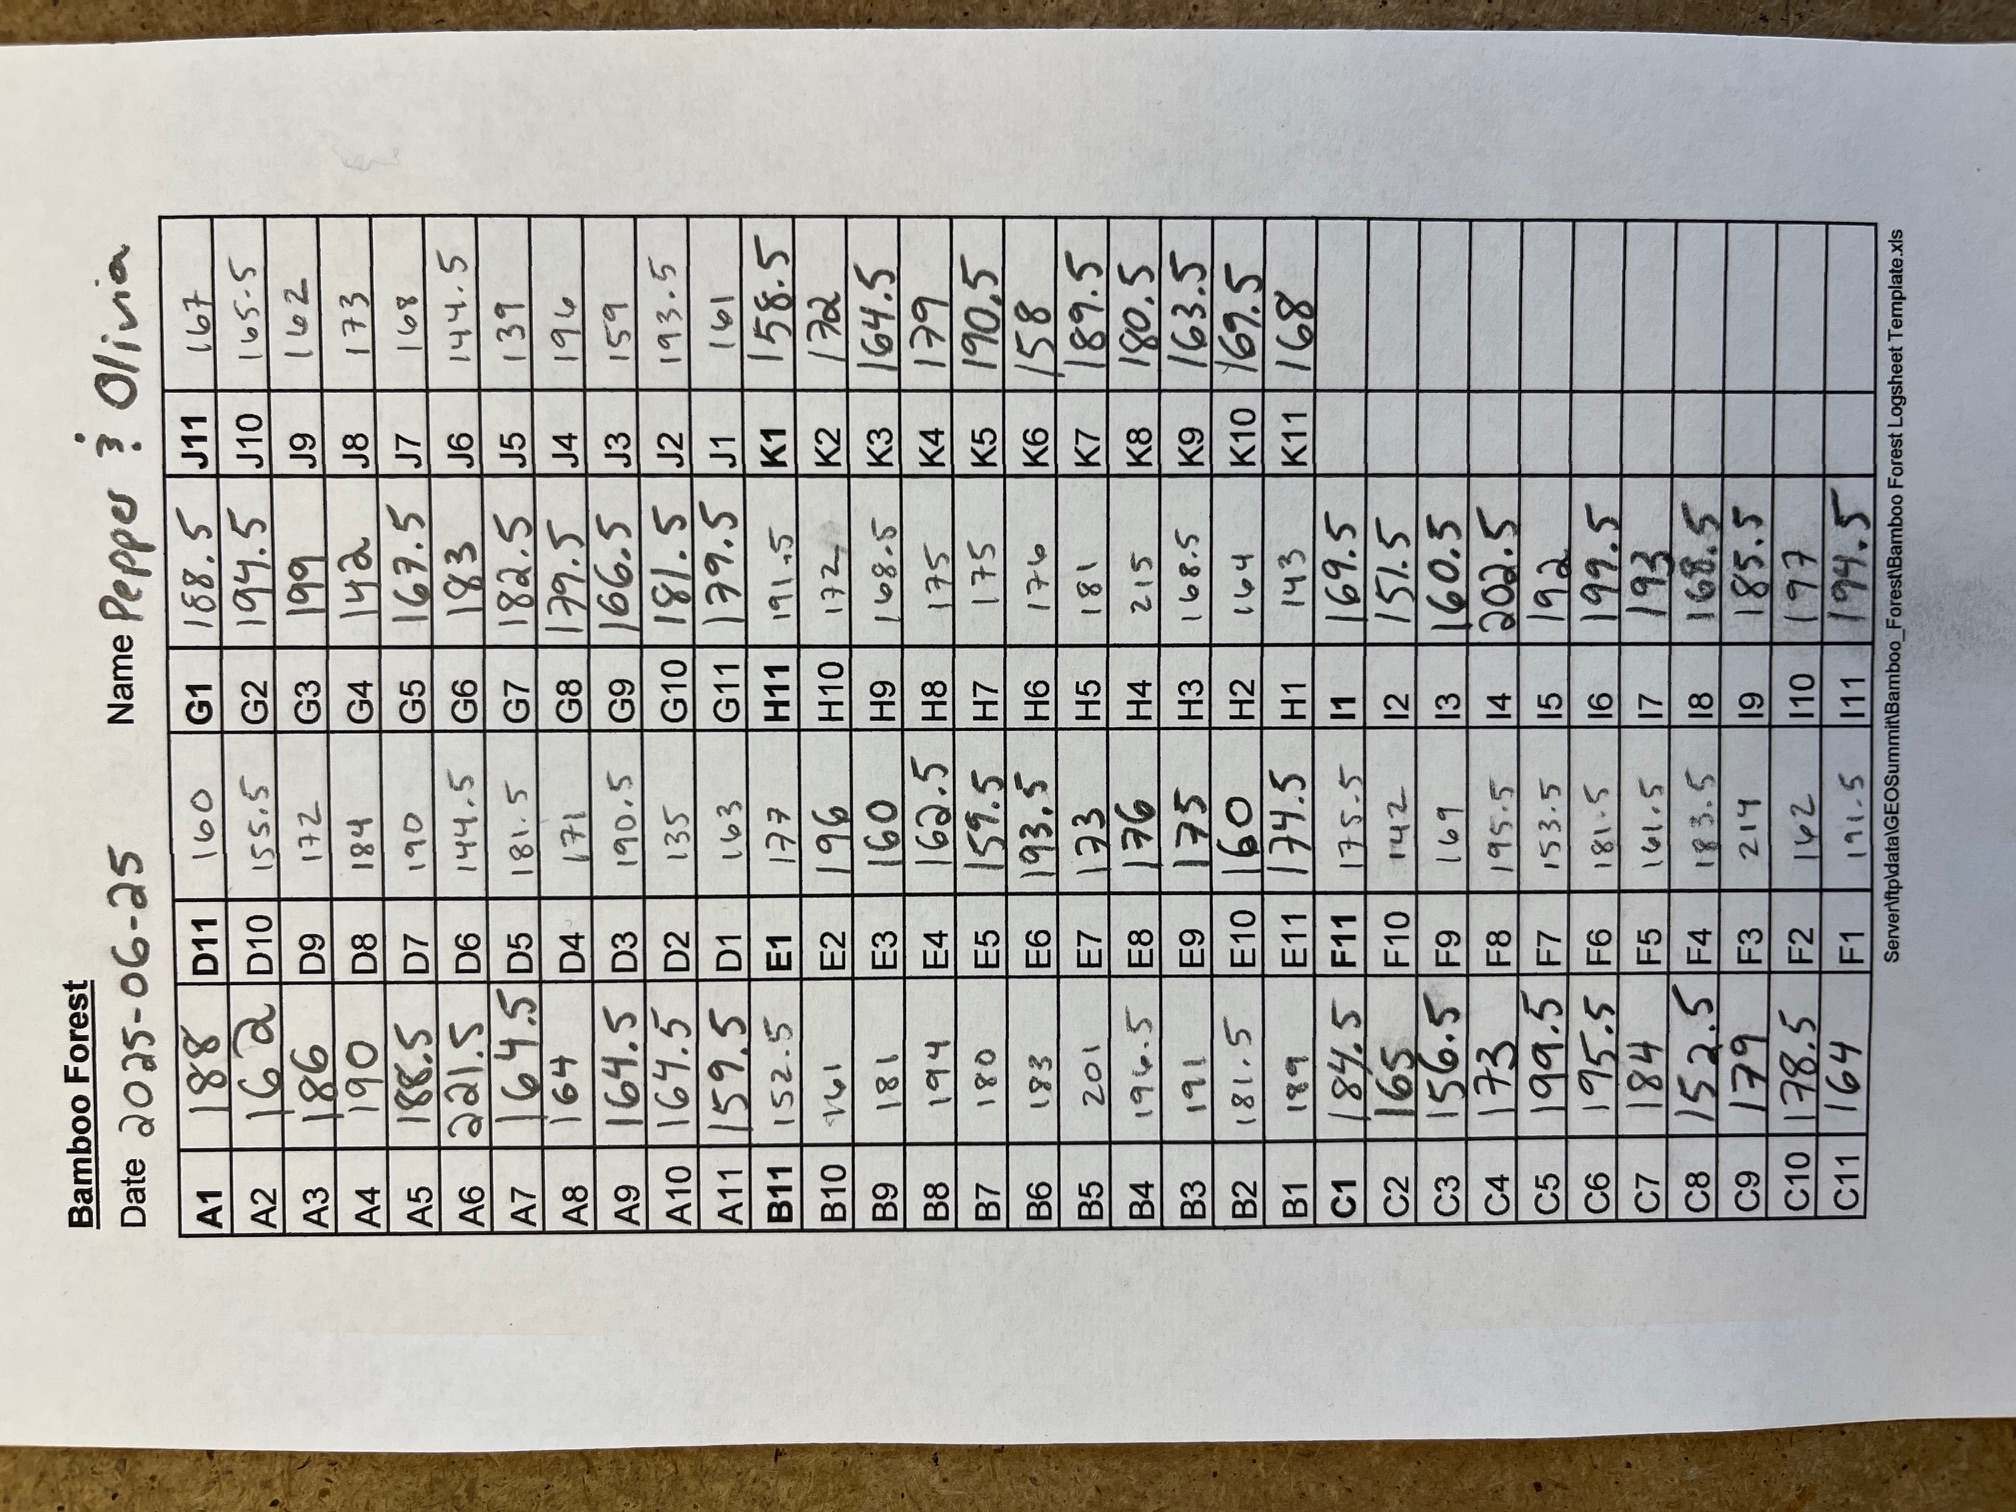 Bamboo Forest
Date 2025-06-25 Name Pepper & Olivia
A1 188 D11 160 G1 188.5 J11 167
A2 162 D10 155.5 G2 194.5 J10 165.5
A3 186 D9 172 G3 199 J9 162
A4 190 D8 184 G4 142 J8 173
A5 188.5 D7 190 G5 167.5 J7 168
A6 221.5 D6 144.5 G6 183 J6 144.5
A7 164.5 D5 181.5 G7 182.5 J5 139
A8 164 D4 171 G8 179.5 J4 196
A9 164.5 D3 190.5 G9 166.5 J3 159
A10 164.5 D2 135 G10 181.5 J2 193.5
A11 159.5 D1 163 G11 179.5 J1 161
B11 152.5 E1 177 H11 191.5 K1 158.5
B10 161 E2 196 H10 172 K2 172
B9 181 E3 160 H9 168.5 K3 164.5
B8 194 E4 162.5 H8 175 K4 179
B7 180 E5 159.5 H7 175 K5 190.5
B6 183 E6 193.5 H6 176 K6 158
B5 201 E7 173 H5 181 K7 189.5
B4 196.5 E8 176 H4 215 K8 180.5
B3 191 E9 175 H3 168.5 K9 163.5
B2 181.5 E10 160 H2 164 K10 169.5
B1 189 E11 174.5 H1 143 K11 168
C1 184.5 F11 175.5 I1 169.5
C2 165 F10 142 I2 151.5
C3 156.5 F9 169 I3 160.5
C4 173 F8 195.5 I4 202.5
C5 199.5 F7 153.5 I5 192
C6 195.5 F6 181.5 I6 199.5
C7 184 F5 161.5 I7 193
C8 152.5 F4 183.5 I8 168.5
C9 179 F3 214 I9 185.5
C10 178.5 F2 162 I10 197
C11 164 F1 191.5 I11 194.5
Server\ftp\data\GEOSummit\Bamboo_Forest\Bamboo Forest Logsheet Template.xls